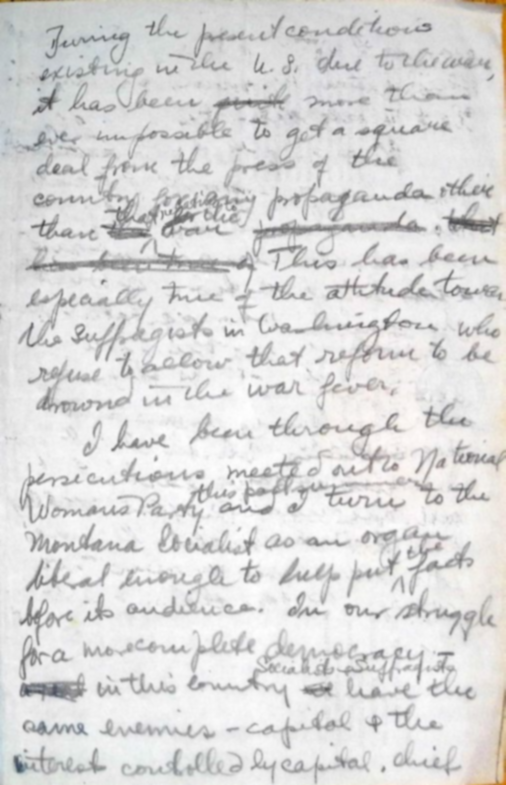 During the present conditions
existing in the U.S. due to the war,
it has been more than
ever impossible to get a square
deal from the press of the
country for any propaganda other
than that for the war propaganda. that
has been true of This has been
especially true of the attitude toward
the Suffragists in Washington who
refuse to allow that reform to be
drownd in the war fever.
I have been through the
persecutions meeted out to National
this past summer
Womans Party and I turn to the
Montana Socialist as an organ
liberal enough to help put the facts
before its audience. In our struggle
for a more complete democracy –
Socialists & Suffragists
in this country have the
same enemies – capital & the
interests controlled by capital, chief